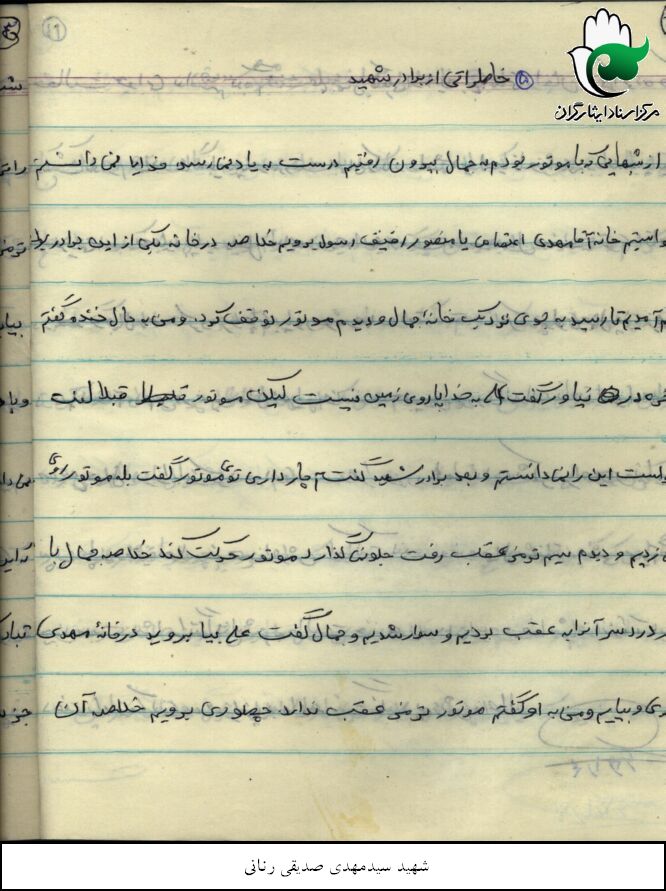 ۱۱
۵ خاطراتی از برادر شهید
مرکز اسناد ایثارگران
از شبهایی که با موتور بودم به جمال بیرون رفتیم درست به یاد نمی رسد خدایا نمی دانستم
خانه آقا مهدی اعتصامی یا منصور رفیق رسول برویم خلاصه در خانه یکی از این برادر
آمدیم تا رسید به جوی نزدیک خانه جمال و دیدم موتور توقف کرد. و من به حال خنده گفتم
در نیاور گفت علی به خدا پا روی زمین نیست لیکن موتور قبلا لنت
است این را نمی دانستم و بعد برادر شهید گفتم چکار داری توی موتور گفت بله موتور روی
زدیم و دیدم سیم ترمز عقب رفت جلو نمی گذارد موتور حرکت کند خلاصه جمال با
دردسر آنرا به عقب بردیم و سوار شدیم و جمال گفت علی بیا بروید در خانهٔ مهدی
و بیایم و من به او گفتم موتور ترمز عقب ندارد چطوری برویم خلاصه آن
شهید سیدمهدی صدیقی رنانی